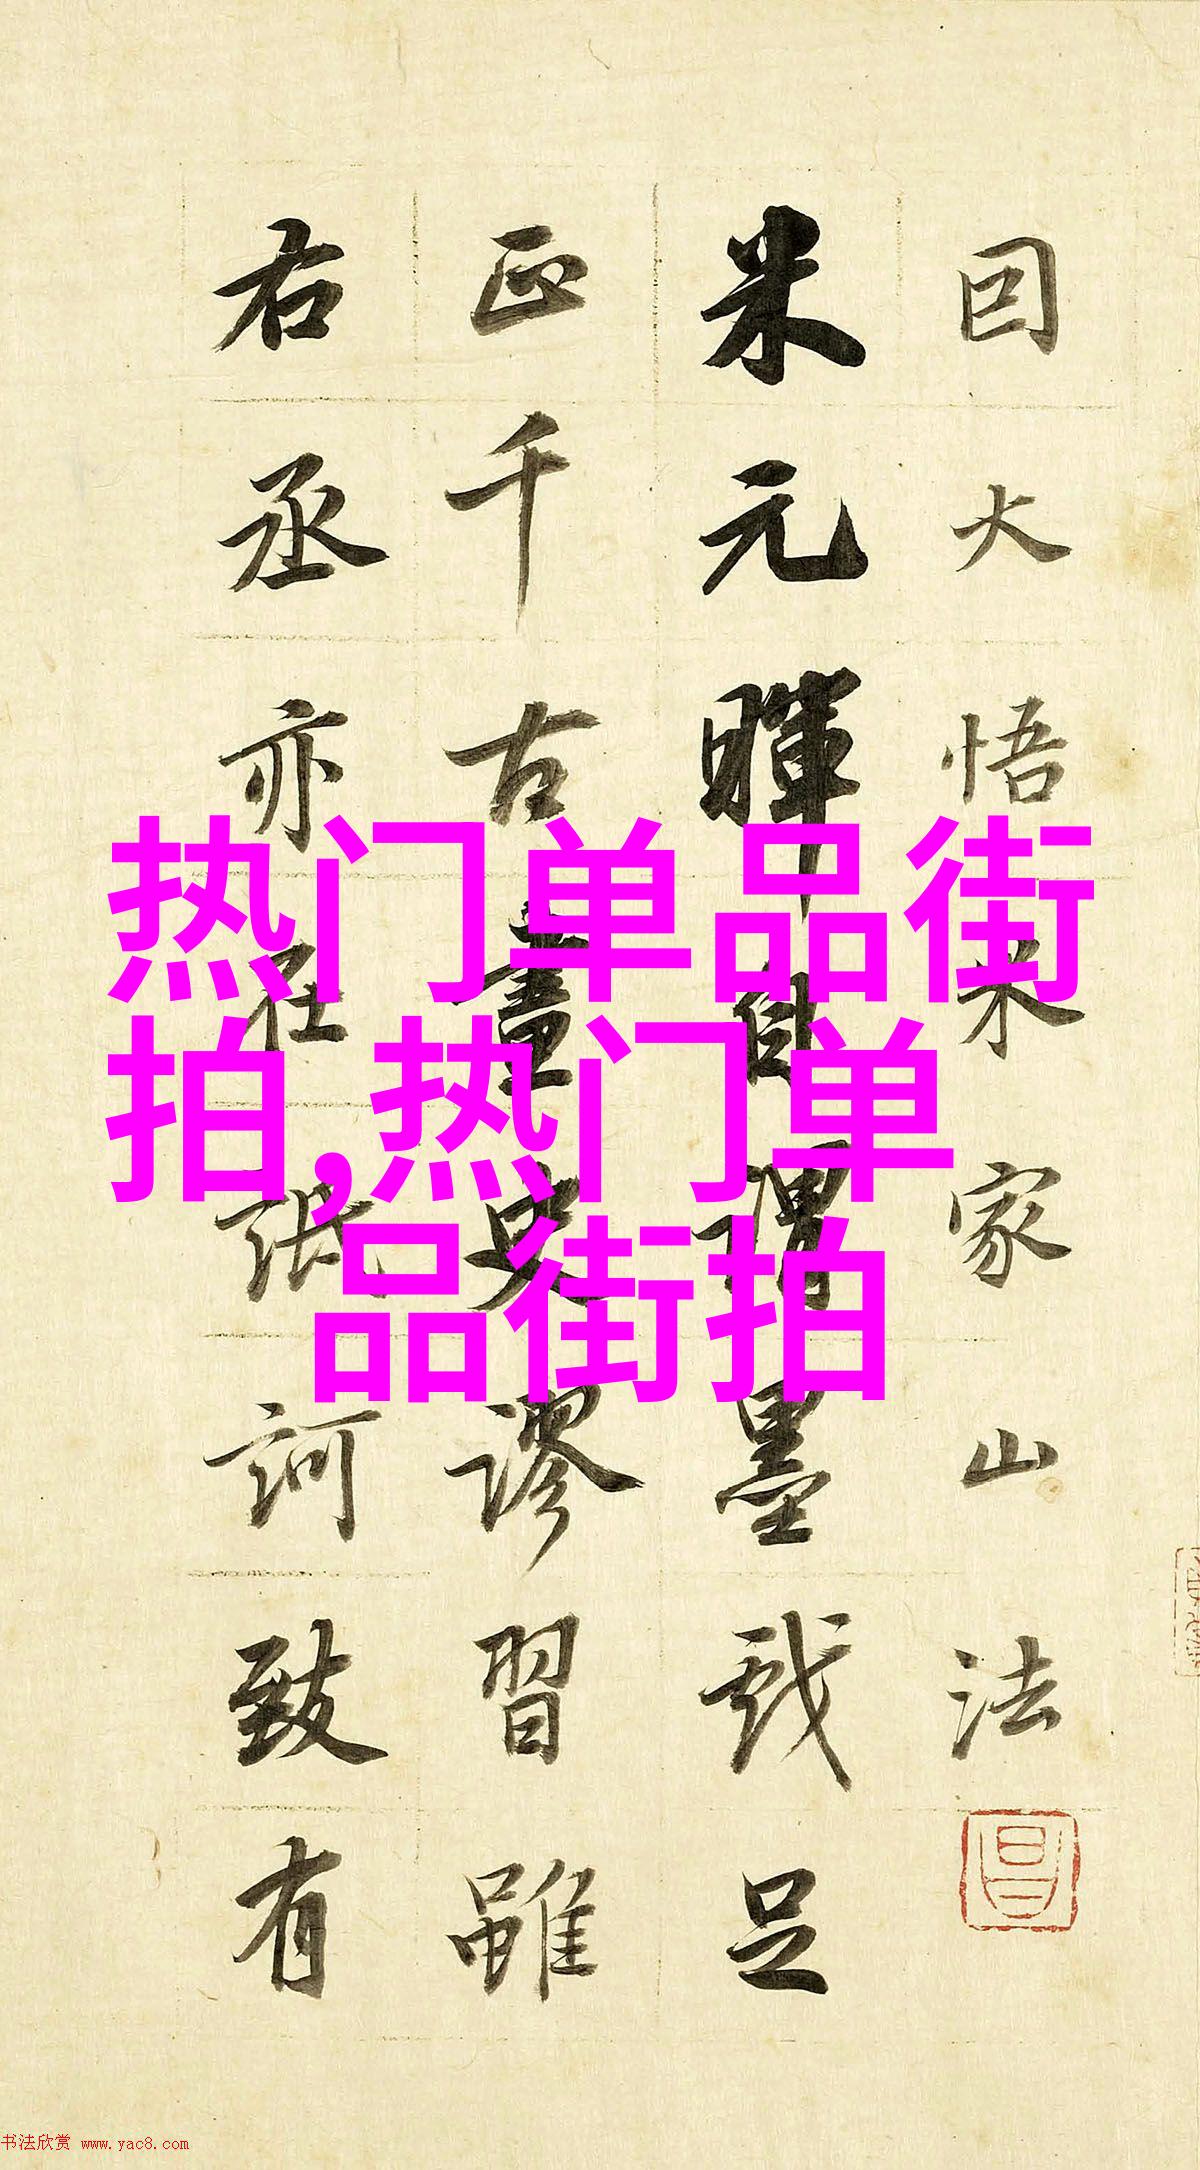 囙大悟米家山法
米元暉自謂墨戲足
正千古畫史謬習雖
右丞亦在詆訶致有
热门单品街
拍,热门单
品街拍
书法欣赏 www.yac8.com